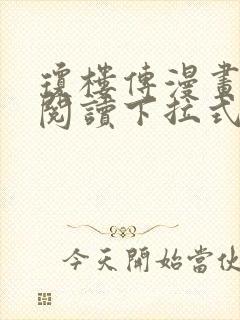 瓊樓傳漫畫
閱讀下拉式
今天開始當伙